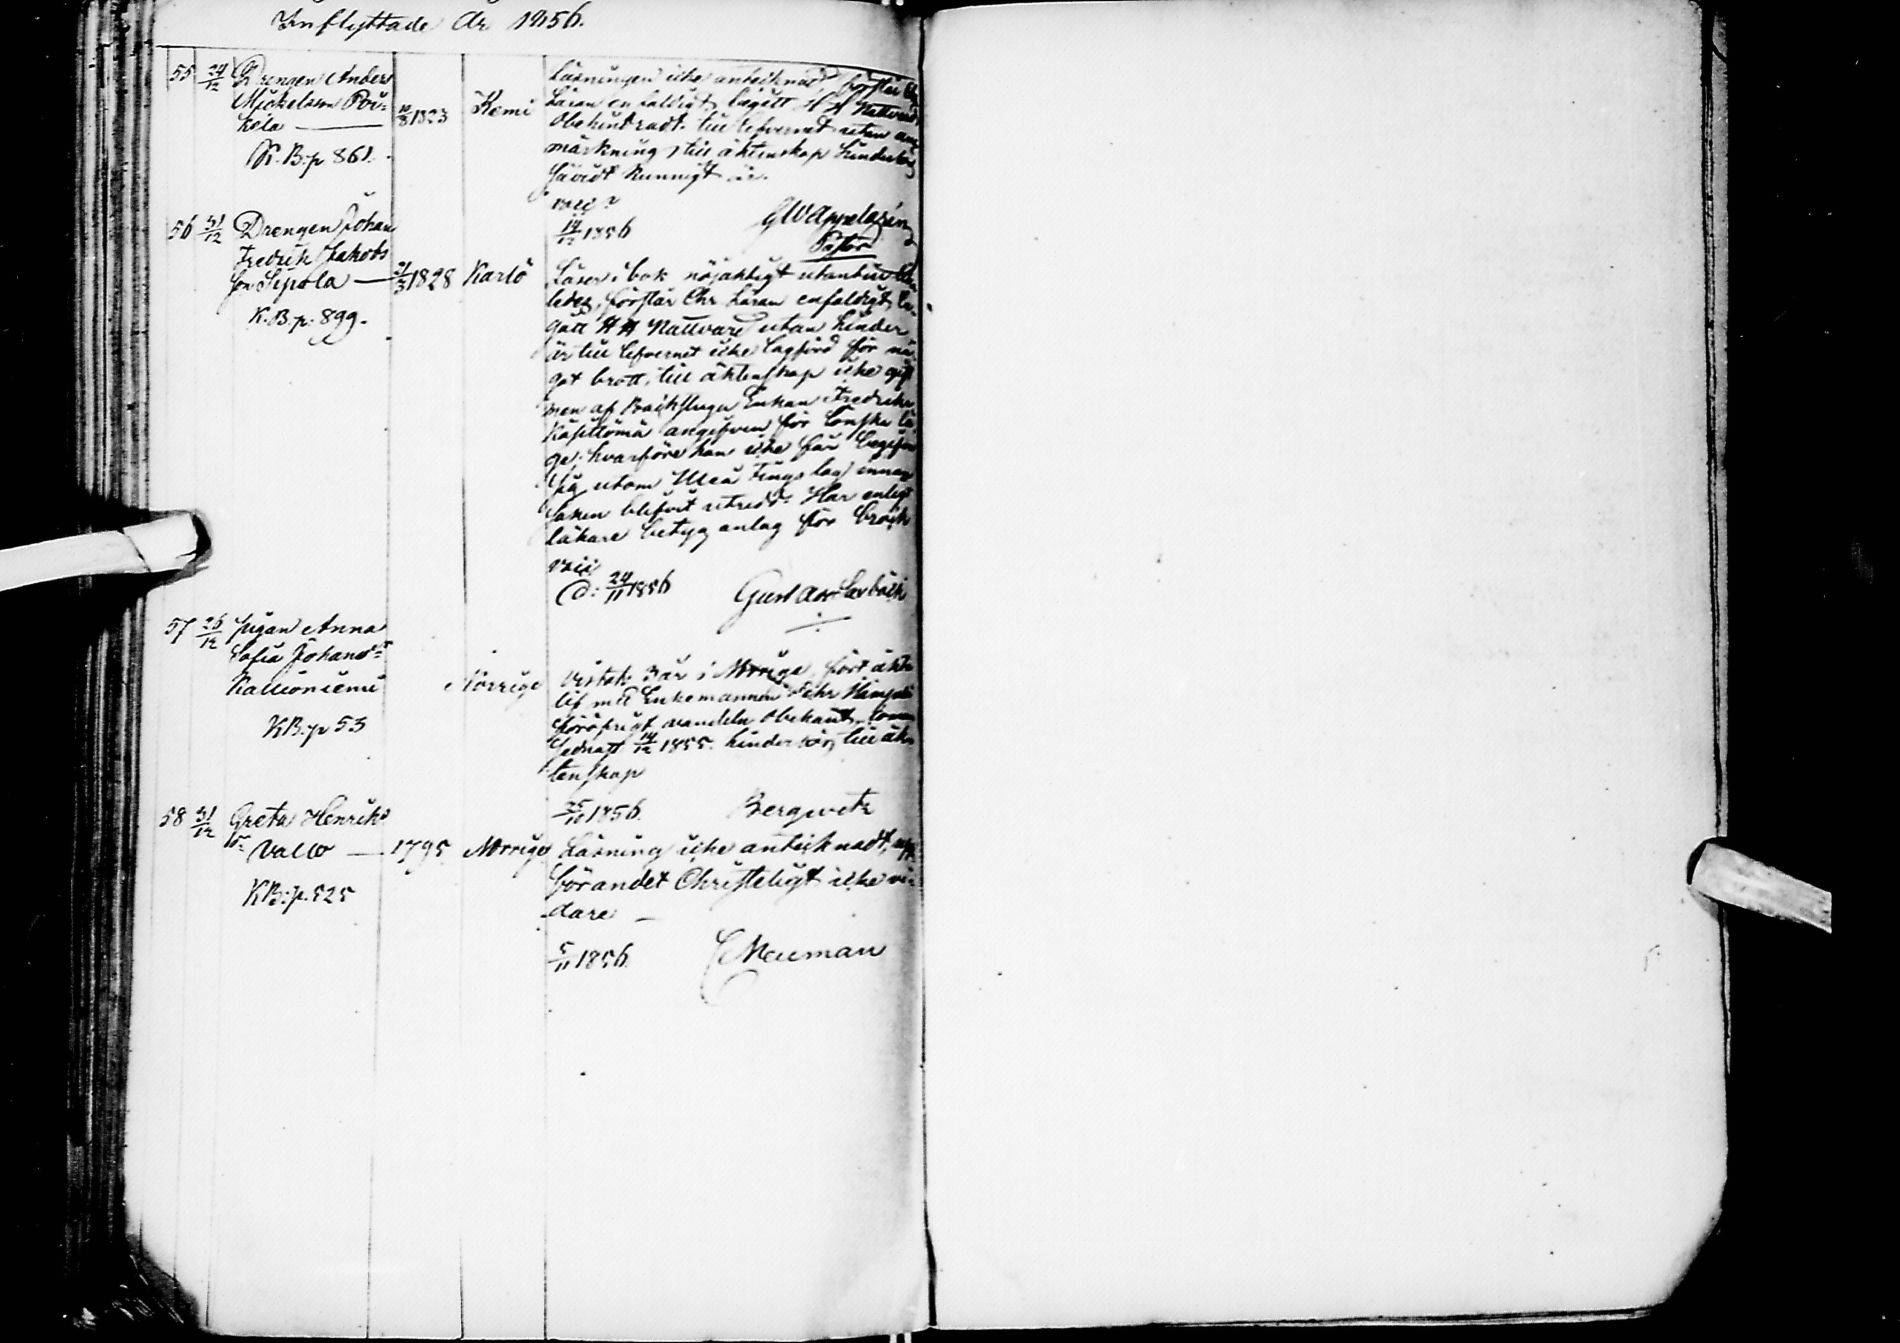 Inflyttade År 1856.
55 24/12 Drengen Anders
Mickelsson Pör=
kelä
K.B.p 861.
10/8 1823 Kemi
Läsningen icke antecknad, förstår Chr
Läran enfaldigt, begått H H Nattvard
obehindradt. till lefvernet utan an=
märkning, till äktenskap hinderlös
såvidt kunnigt är.
14/12 1856 GW Appelgrén
Pastor
56 31/12 Drengen Johan
Fredrik Jakobs
son Sipola
K.B.p. 899.
21/3 1828 Karlö
Läser i bok nöjaktigt utantill
ledes, förstår Chr Läran enfaldigt, be-
gått HH Nattvard utan hinder
är till lefvernet icke lagförd för nå
got brott, till äktenskap icke gift
men af Enkan Fredrika
angifven för lönska lä
ge, hvarföre han icke får begifva
sig utom Uleå Tingslag innan
saken blifvit utredd. Har enligt
läkare betyg anlag för bråck
d: 24/11 1856 Gustav
57 26/12 Pigan Anna
Sofia Johansdr
Kallioniemi
KB.p 53
Norrige
vistats 3 år i Norrige, fört äkta
lif med Enkemannen Pehr
föröfrigt vandeln obekant.
sednast 14/12 1855. hinderlös till äk=
tenskap
25/11 1856. Bergwitz
58 31/12 Greta Henriks
dr Vallo
KB.p. 525
1795 Norrige
Läsning icke antecknadt, upp
förandet Christeligt icke vi=
dare
5/11 1856. C Neuman